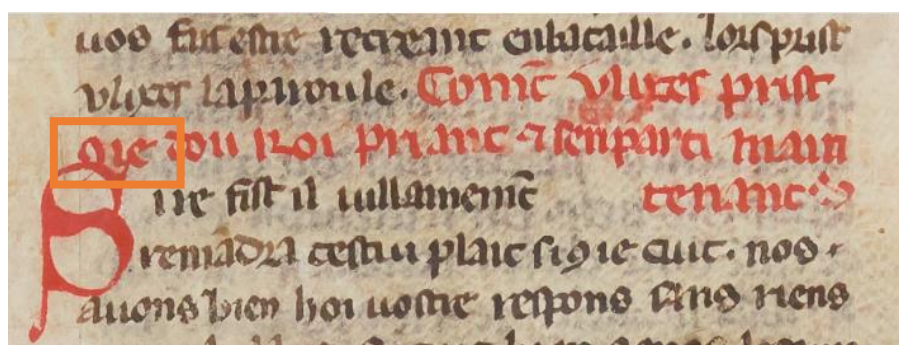 uos fust estre recreant enbataille. lors prist
vlixes laparoule. Coment vlixes prist
9ie dou Roi priant ⁊ senparti main
Sire fist il nullament tenant
remādra cestui plait si 9 ie cuit. nos
auons bien hoi uostre respons sans riens